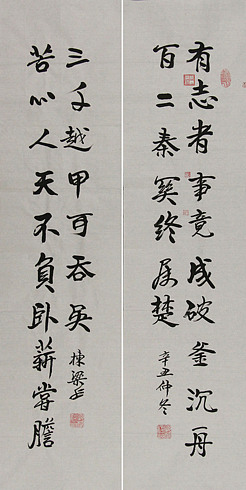 有志者事竟成破釜沉舟
百二秦關终属楚
辛丑仲冬
苦心人天不負卧薪嘗膽
三千越甲可吞吴
棟梁书